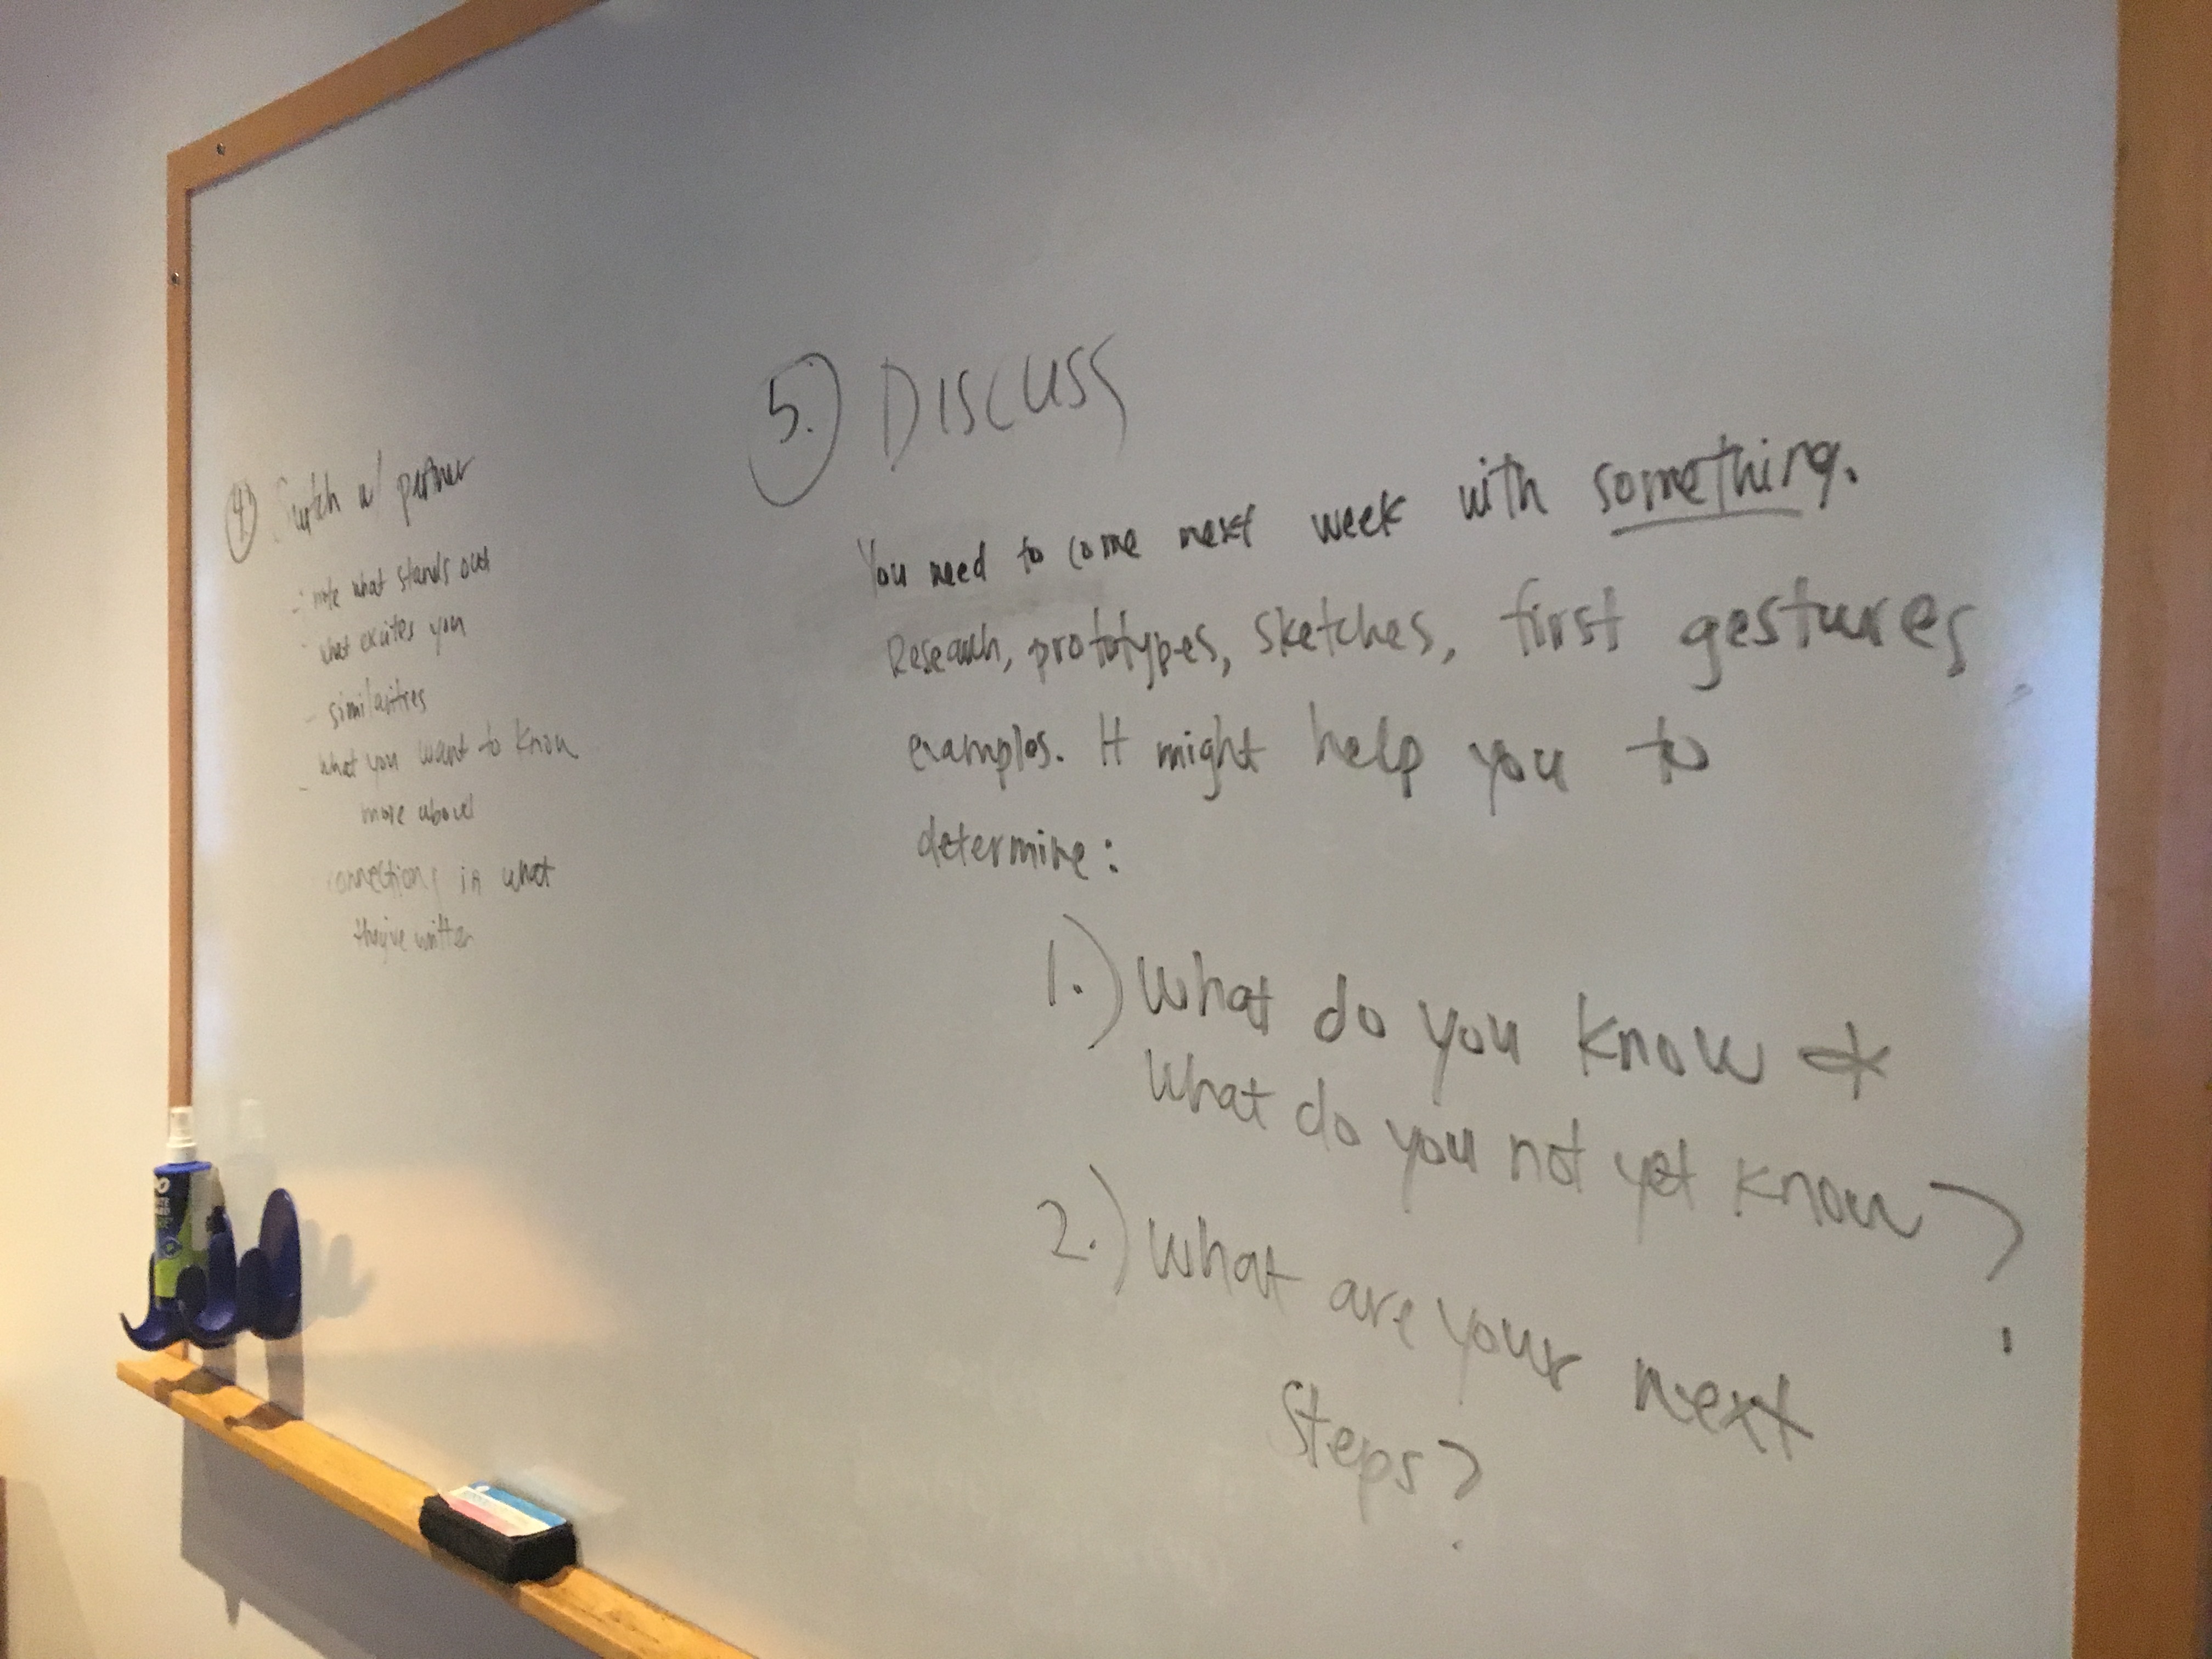 4) Switch w/ partner
- note what stands out
- what excites you
- similarities
- what you want to know
more about
connections in what
they've written
5. DISCUSS
You need to come next week with something.
Research, prototypes, sketches, first gestures
examples. It might help you to
determine:
1.) What do you know &
What do you not yet know?
2.) What are your next
steps?